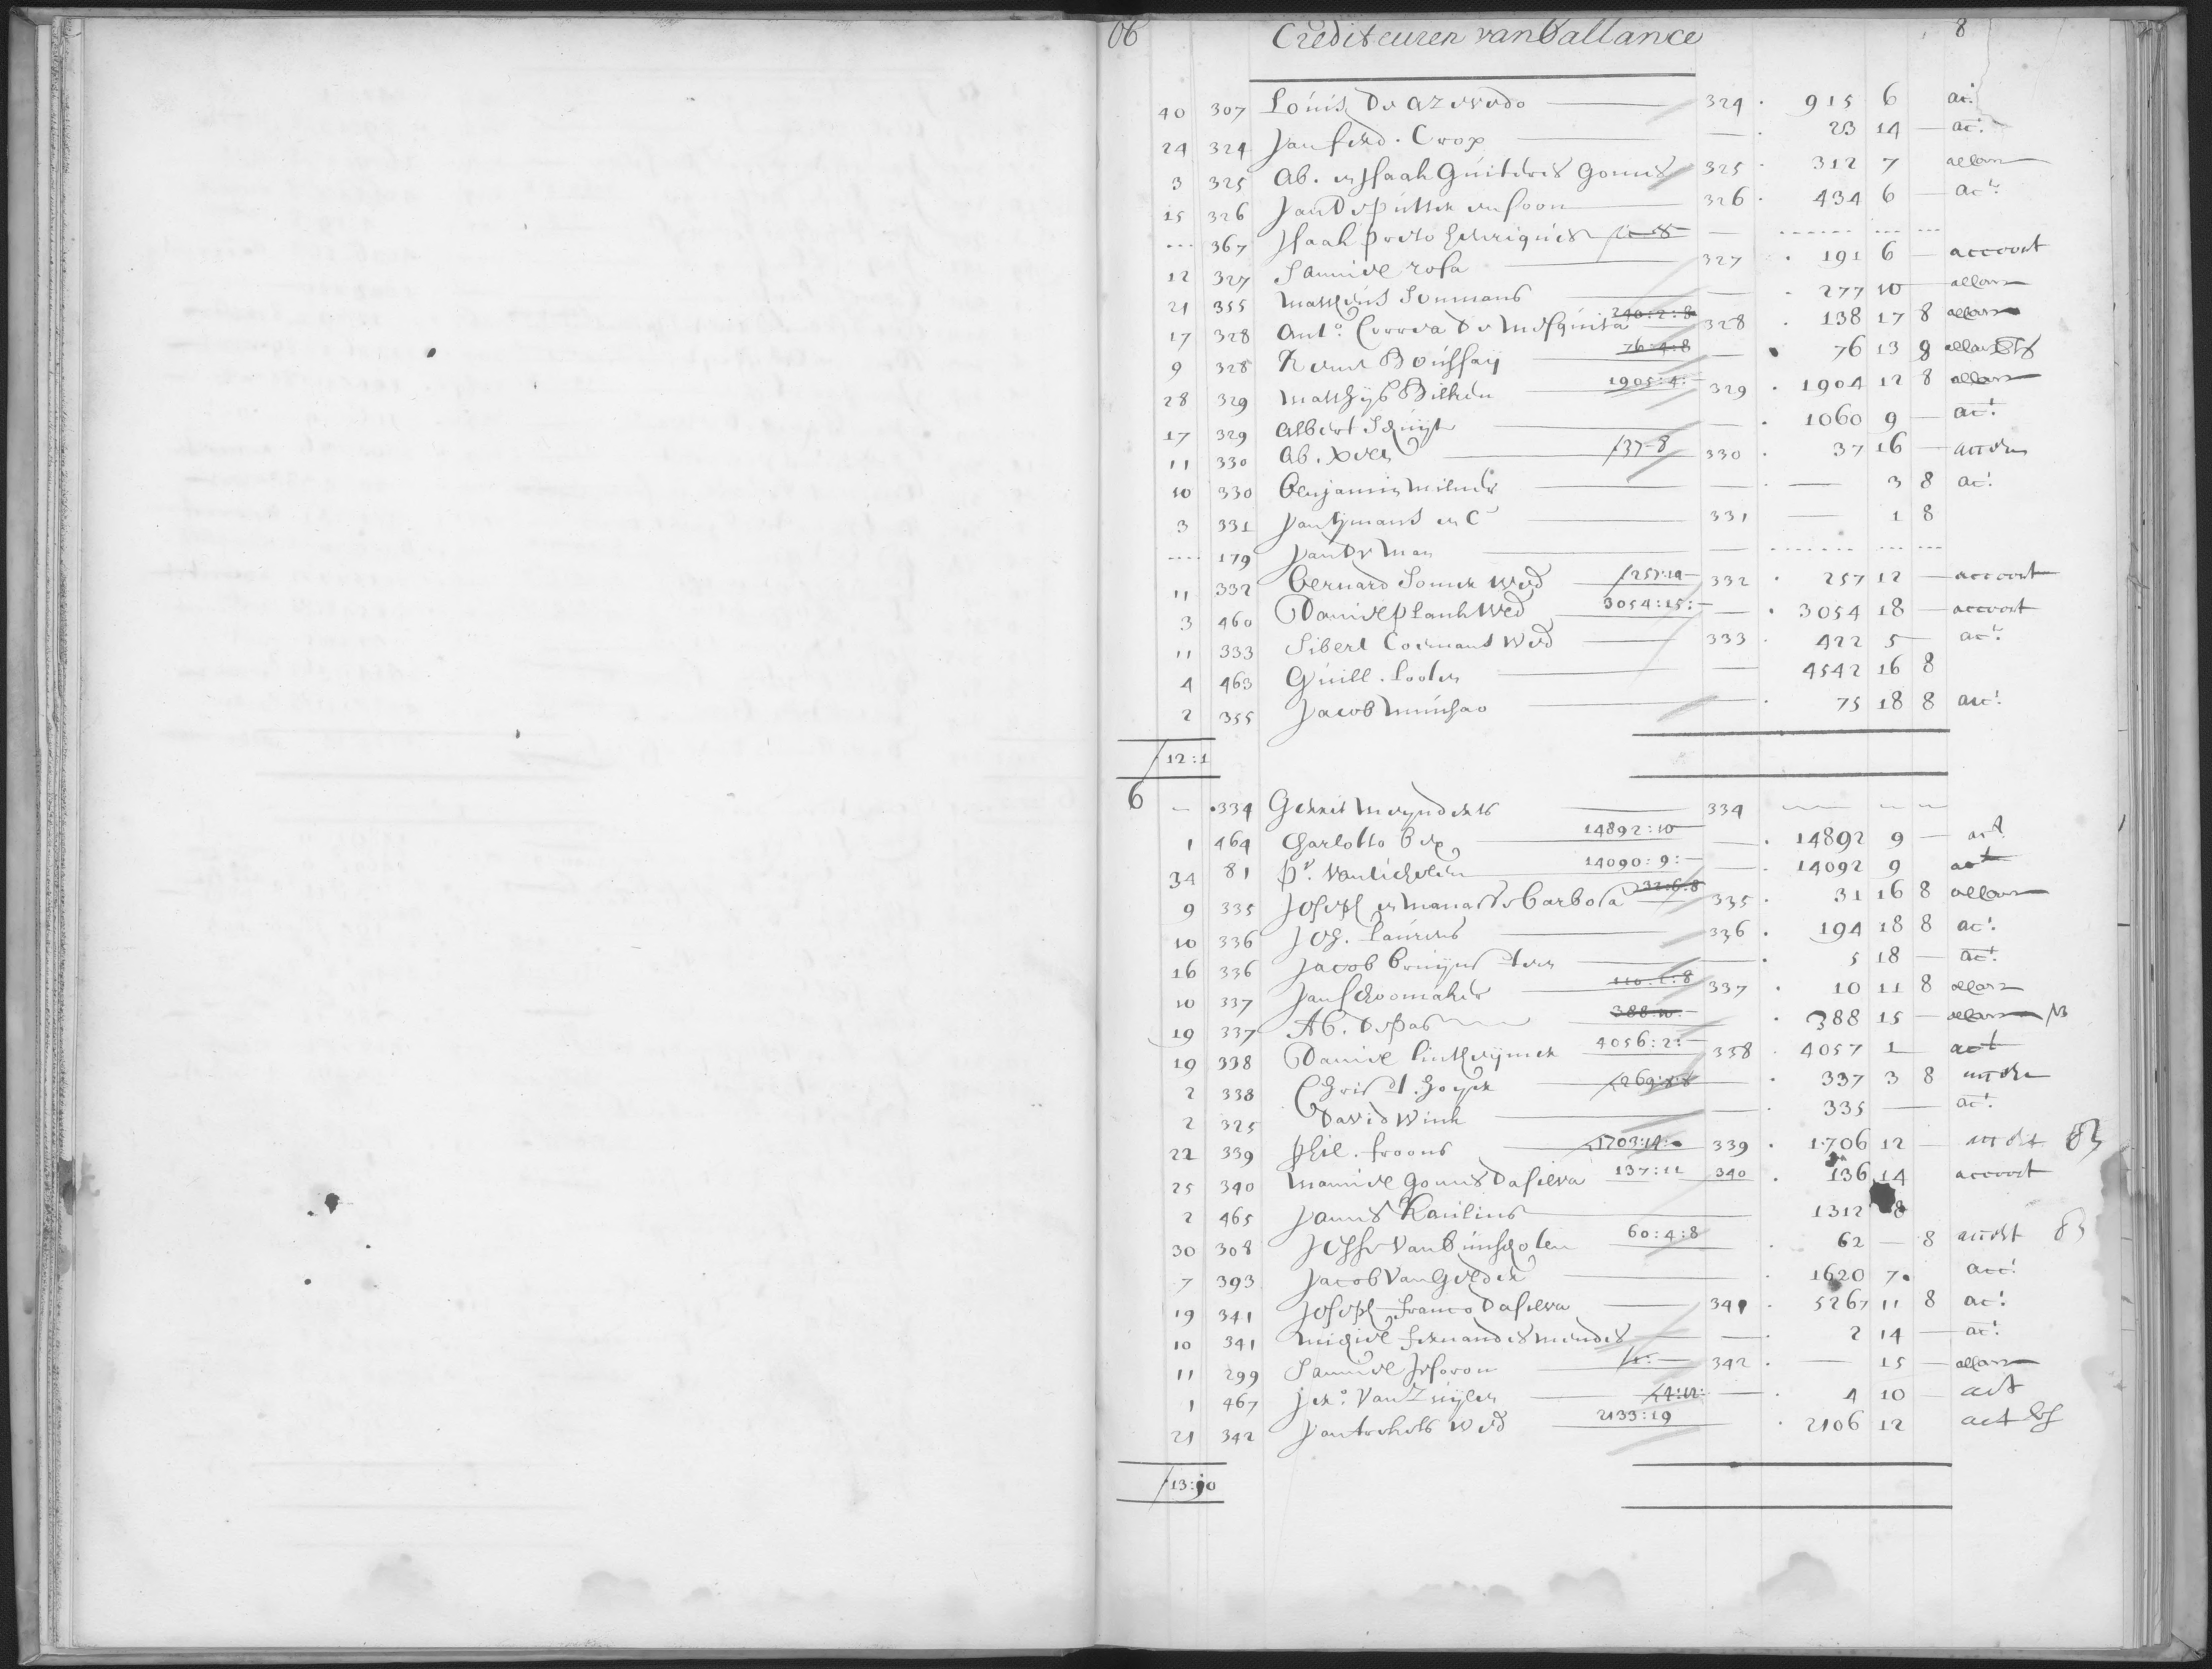 06 Crediteuren van Ballance 8
40 307 Louis De Azevedo 324 915 6 ac.t
24 324 Jan ferd. Crop 23 14 ac.t
3 325 Ab. en Isaak Guiteres Gomes 325 312 7
15 326 Jan De putter en soon 326 434 6 ac.t
367 Isaak preto Henriques
12 327 Samuel rosa 327 191 6 accoort
21 355 Mattheus Soumans 277 10
17 328 Ant.o Correa De Mesquita 240:2:8 328 138 17 8
9 328 Rene Boussaij 76:4:8 76 13 8
28 329 Matthijs Bilken 1905:4:- 329 1904 12 8
17 329 Albert Schuijt 1060 9 ac.t
11 330 Ab. 137-8 330 37 16
10 330 Benjamin 3 8 ac.t
3 331 Jan Tijmans en C 331 1 8
179 Jan De Man
11 332 Bernard Somer Wed 257:14 332 257 12 accoort
3 460 Daniel plank Wed 3054:15:- 3054 18 accoort
11 333 Sibert Coymans Wed 333 422 5 ac.t
4 463 Guill. Loolen 4542 16 8
2 355 Jacob 75 18 8 acc.t
12:1
6 334 Gerrit Meynderts 334
1 464 Charlotta Bex 14892:10 14892 9 act
34 81 p.r Van Lichelen 14090:9:- 14092 9 act
9 335 Joseph en Manasse Barbosa 32:6:8 335 31 16 8
10 336 Joh. Laurens 336 194 18 8 ac.t
16 336 Jacob Bruijns 5 18 ac.t
10 337 Jan schoomaker 110:1:8 337 10 11 8
19 337 Ab. Depas 388:10:- 388 15
19 338 Daniel 4056:2:- 338 4057 1 act
2 338 Christ. 337 3 8
2 325 David Wink 335 ac.t
22 339 phil. froons 1703:14: 339 1706 12
25 340 Manuel Gomes Dasilva 137:11 340 136 14 accoort
2 465 Jannes Raulius 1312 8
30 308 Van Bunschoten 60:4:8 62 8
7 393 Jacob Van Gelder 1620 7 acc.t
19 341 Joseph franco Dasilva 341 5267 11 8 ac.t
10 341 Migiel fernandes Mendes 2 14 ac.t
11 299 Samuel Jesoron 342 15
1 467 Jer.o Van Zuijlen 4:12: 4 10 act
21 342 Jan Wed 2133:19 2106 12 act
13:10